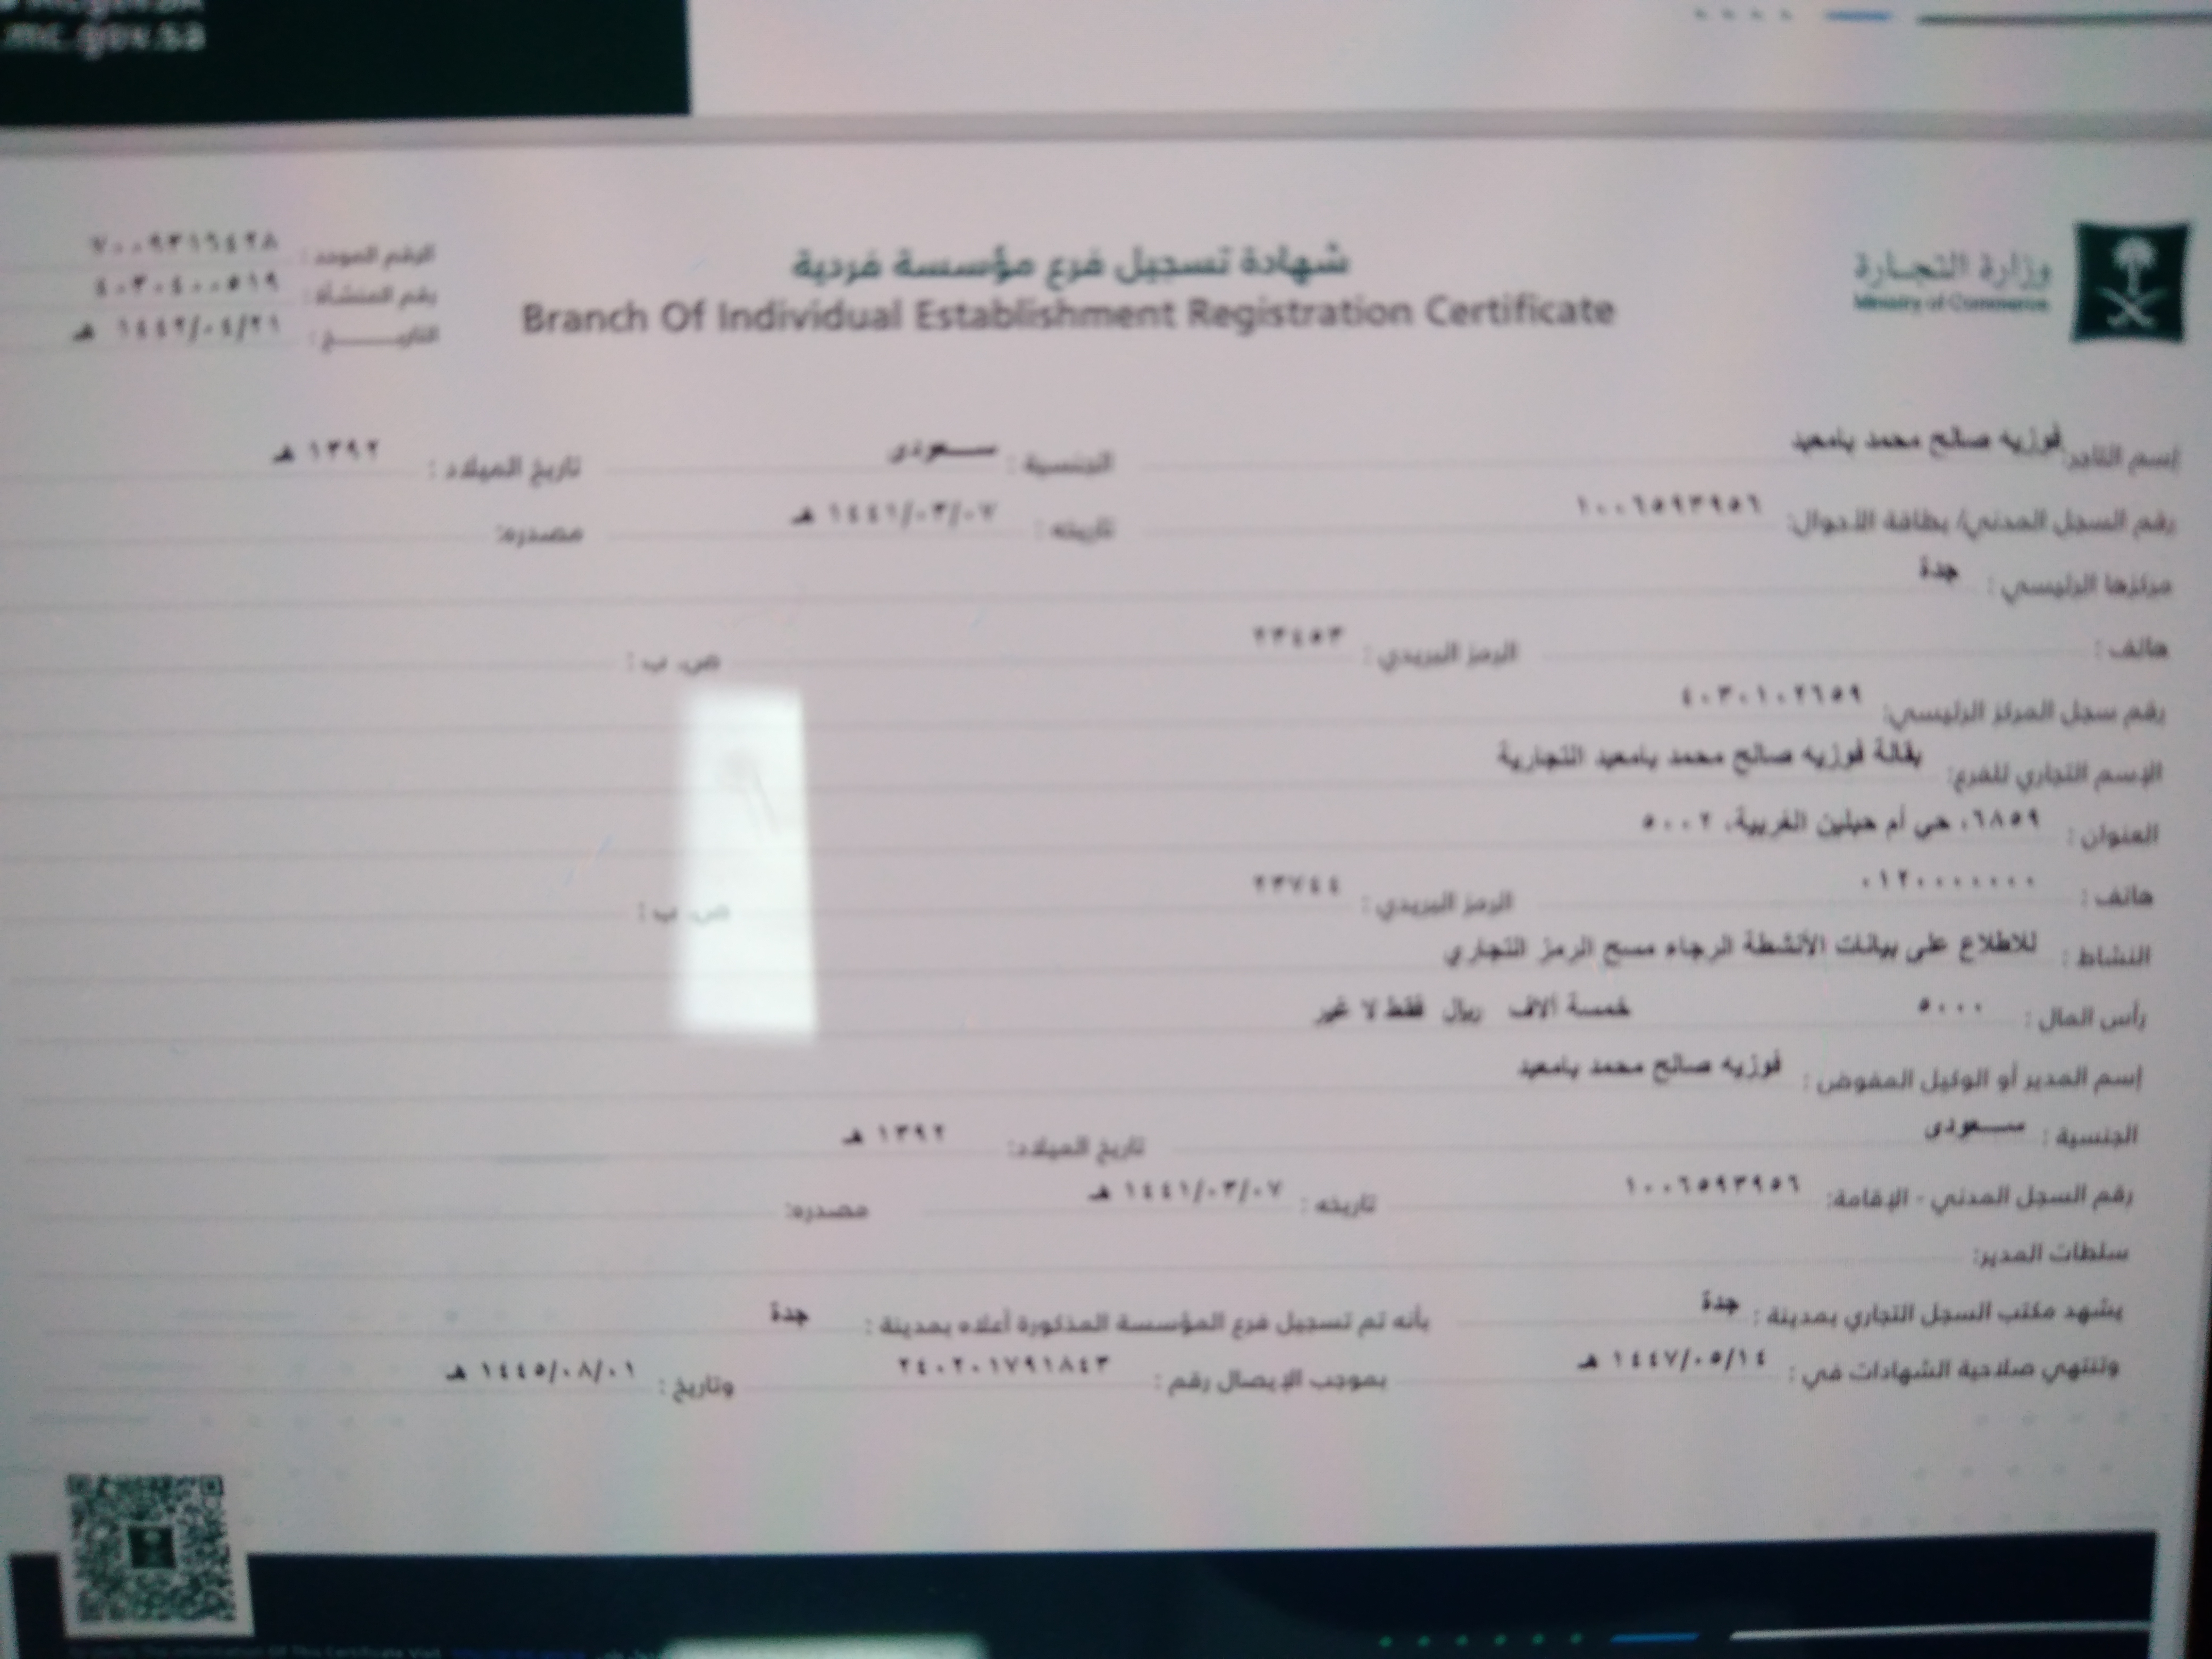 mc.gov.sa
وزارة التجارة
Ministry of Commerce
شهادة تسجيل فرع مؤسسة فردية
Branch Of Individual Establishment Registration Certificate
الرقم الموحد : ٧٠٠٩٣١٦٤٢٨
رقم المنشأة : ٤٠٣٠٤٠٠٥١٩
التاريخ : ١٤٤٢/٠٤/٢١ هـ
إسم التاجر: فوزيه صالح محمد بامعيد الجنسية : سعودى تاريخ الميلاد : ١٣٩٢ هـ
رقم السجل المدني/ بطاقة الأحوال: ١٠٠٦٥٩٣٩٥٦ تاريخه : ١٤٤١/٠٣/٠٧ هـ مصدره:
مركزها الرئيسي : جدة
هاتف : الرمز البريدي : ٢٣٤٥٣ ص. ب :
رقم سجل المركز الرئيسي: ٤٠٣٠١٠٢٦٥٩
الإسم التجاري للفرع: بقالة فوزيه صالح محمد بامعيد التجارية
العنوان : ٦٨٥٩، حي أم حبلين الغربية، ٥٠٠٢
هاتف : ٠١٢٠٠٠٠٠٠٠ الرمز البريدي : ٢٣٧٤٤ ص. ب :
النشاط : للاطلاع على بيانات الأنشطة الرجاء مسح الرمز التجاري
رأس المال : ٥٠٠٠ خمسة آلاف ريال فقط لا غير
إسم المدير أو الوكيل المفوض : فوزيه صالح محمد بامعيد
الجنسية : سعودى تاريخ الميلاد: ١٣٩٢ هـ
رقم السجل المدني - الإقامة: ١٠٠٦٥٩٣٩٥٦ تاريخه : ١٤٤١/٠٣/٠٧ هـ مصدره:
سلطات المدير:
يشهد مكتب السجل التجاري بمدينة : جدة بأنه تم تسجيل فرع المؤسسة المذكورة أعلاه بمدينة : جدة
وتنتهي صلاحية الشهادات في : ١٤٤٧/٠٥/١٤ هـ بموجب الإيصال رقم : ٢٤٠٢٠١٧٩١٨٤٣ وتاريخ : ١٤٤٥/٠٨/٠١ هـ